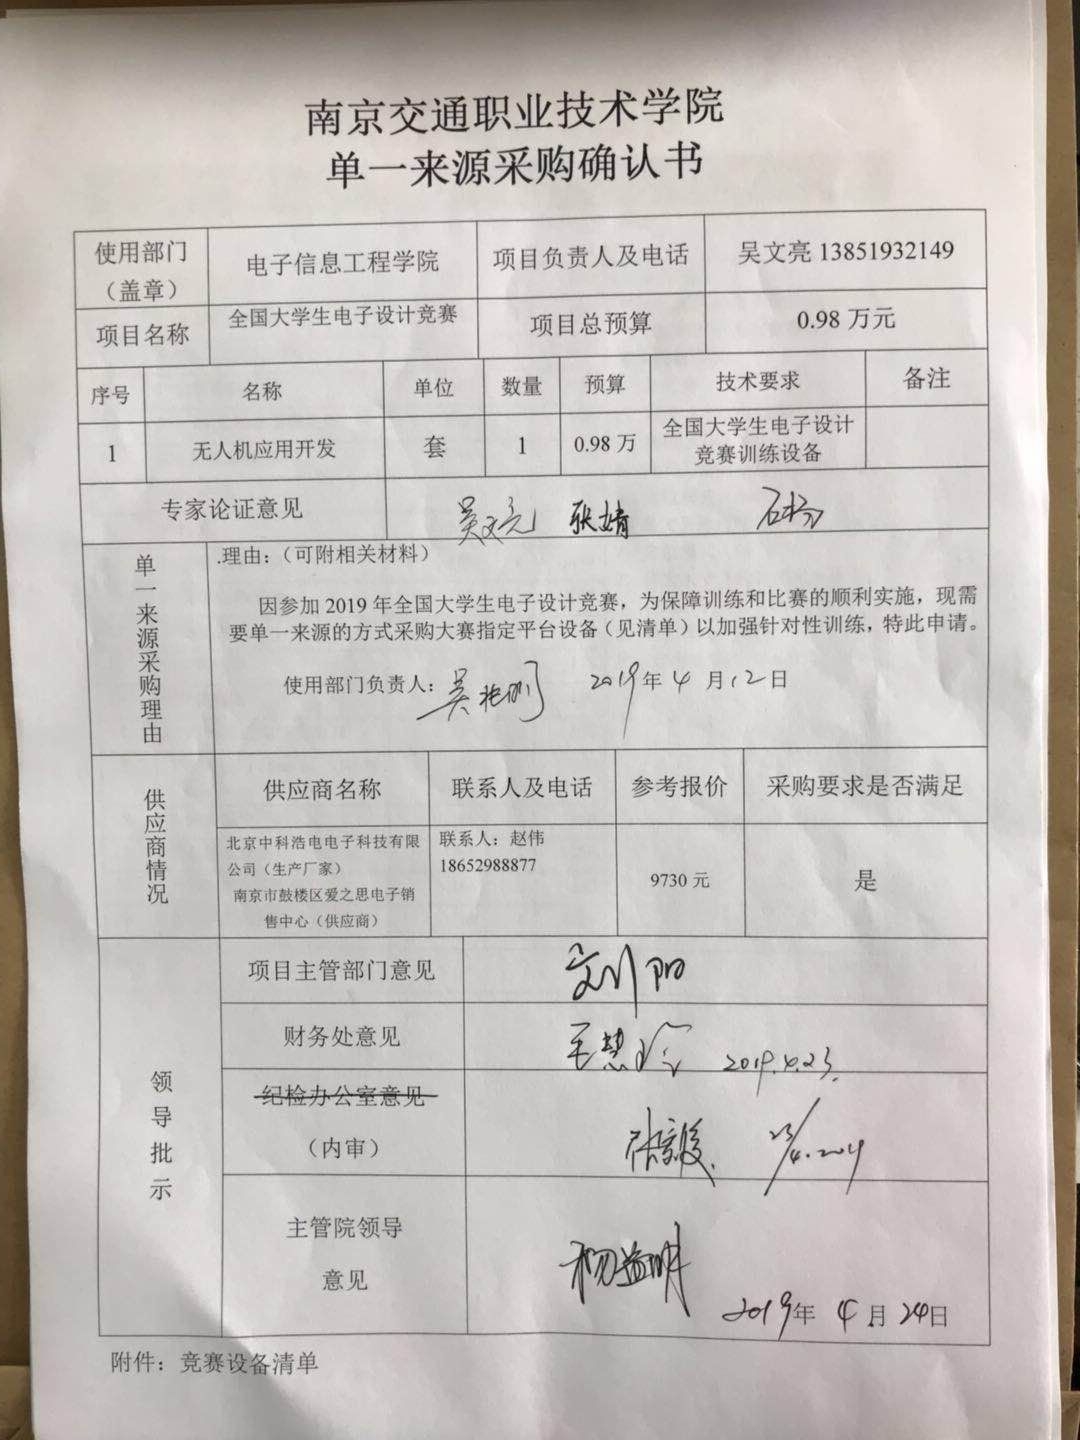 南京交通职业技术学院
单一来源采购确认书
使用部门
（盖章）
电子信息工程学院
项目负责人及电话
吴文亮 13851932149
项目名称
全国大学生电子设计竞赛
项目总预算
0.98 万元
序号
名称
单位
数量
预算
技术要求
备注
1
无人机应用开发
套
1
0.98 万
全国大学生电子设计
竞赛训练设备
专家论证意见
吴文亮 张婧 石杨
单一来源采购理由
.理由：（可附相关材料）
因参加 2019 年全国大学生电子设计竞赛，为保障训练和比赛的顺利实施，现需
要单一来源的方式采购大赛指定平台设备（见清单）以加强针对性训练，特此申请。
使用部门负责人： 2019年 4 月12日
供应商情况
供应商名称
联系人及电话
参考报价
采购要求是否满足
北京中科浩电电子科技有限
公司（生产厂家）
南京市鼓楼区爱之思电子销
售中心（供应商）
联系人：赵伟
18652988877
9730 元
是
领导批示
项目主管部门意见
财务处意见
王慧玲 2019.4.23.
纪检办公室意见
（内审）
23/4.2019
主管院领导
意见
杨益明
2019年 4 月 24日
附件：竞赛设备清单